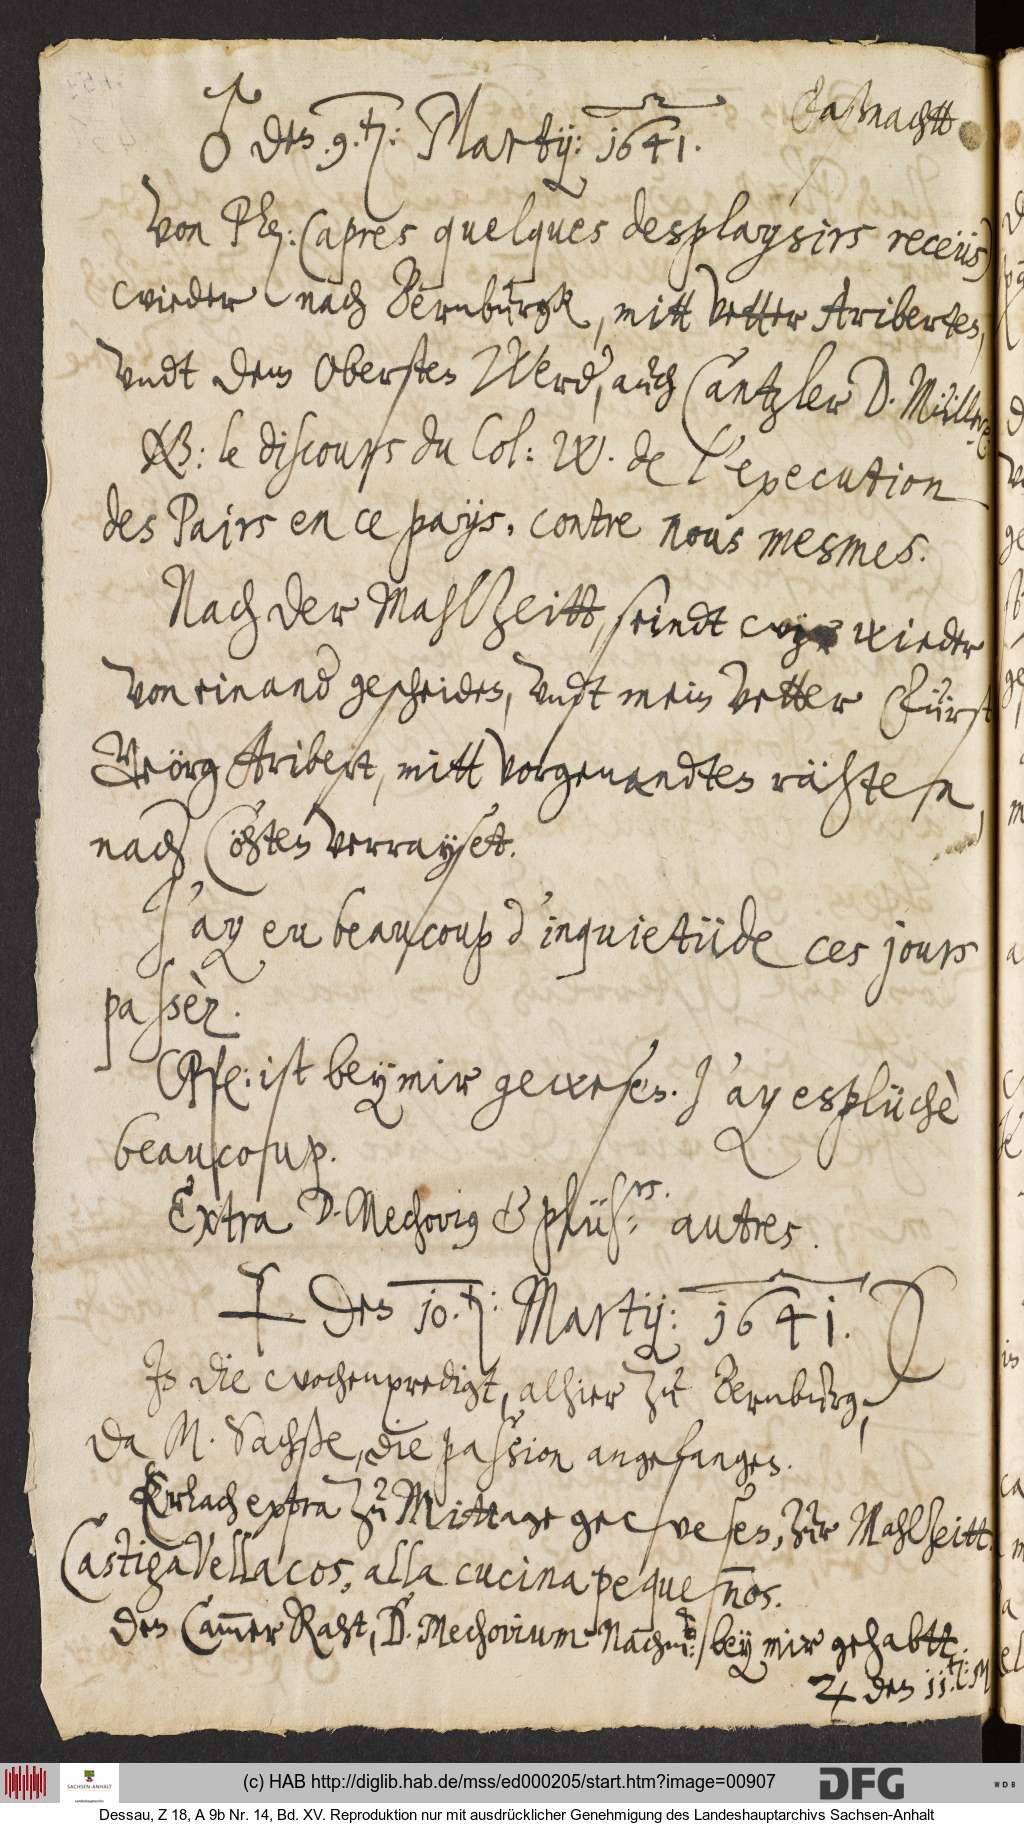 ♂ den .9.t[en]: Martzij: 1641. Faßnachtt
Von Ptz: (apres quelques desplaysirs receüs)
wieder nach Bernburgk, mitt Vetter Ariberten,
Vndt dem Obersten Werder, auch Cantzler D. Müllern
NB: le discours du Col: W. de l'execution
des Pairs en ce païs, contre nous mesmes.
Nach der Mahlzeitt, seindt wir wieder
von einand gescheiden, vndt mein Vetter Fürst
Geörg Aribert, mitt vorgenandten rähten,
nach Cöhten verrayset.
J'ay eu beaucoup d'inquietüde ces jours
passèz.
Pfe: ist bey mir gewesen. J'ay esplüchè
beaucoup.
Extra D. Mechovig & plüs:rs. autres.
☿ den 10.t[en]: Martzij: 1641.
In die wochenpredigt, alhier zu Bernburg,
da M. Sachße, die paßion angefangen.
Erlach extra zu Mittage gewesen, zur Mahlzeitt.
Castiga Vellacos, alla cucina pequeños.
Den Cam̅er Raht, D. Mechovium Nachm: bey mir gehabtt.
♃ den 11.t[en]: M
(c) HAB http://diglib.hab.de/mss/ed000205/start.htm?image=00907
SACHSEN-ANHALT
DFG
WDB
Dessau, Z 18, A 9b Nr. 14, Bd. XV. Reproduktion nur mit ausdrücklicher Genehmigung des Landeshauptarchivs Sachsen-Anhalt